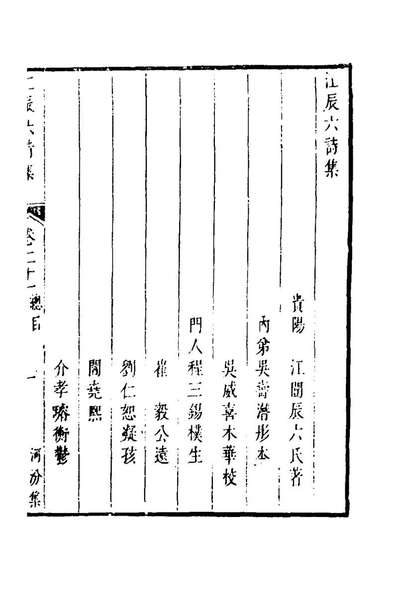 江辰六詩集
貴陽 江闓辰六氏著
內弟吳壽潛彤本
吳威喜木華校
門人程三錫樸生
崔 毅公遠
劉仁恕凝孩
閻堯熙
介孝瑹衡鬱
江辰六詩集 卷二十一總目 一 河汾集